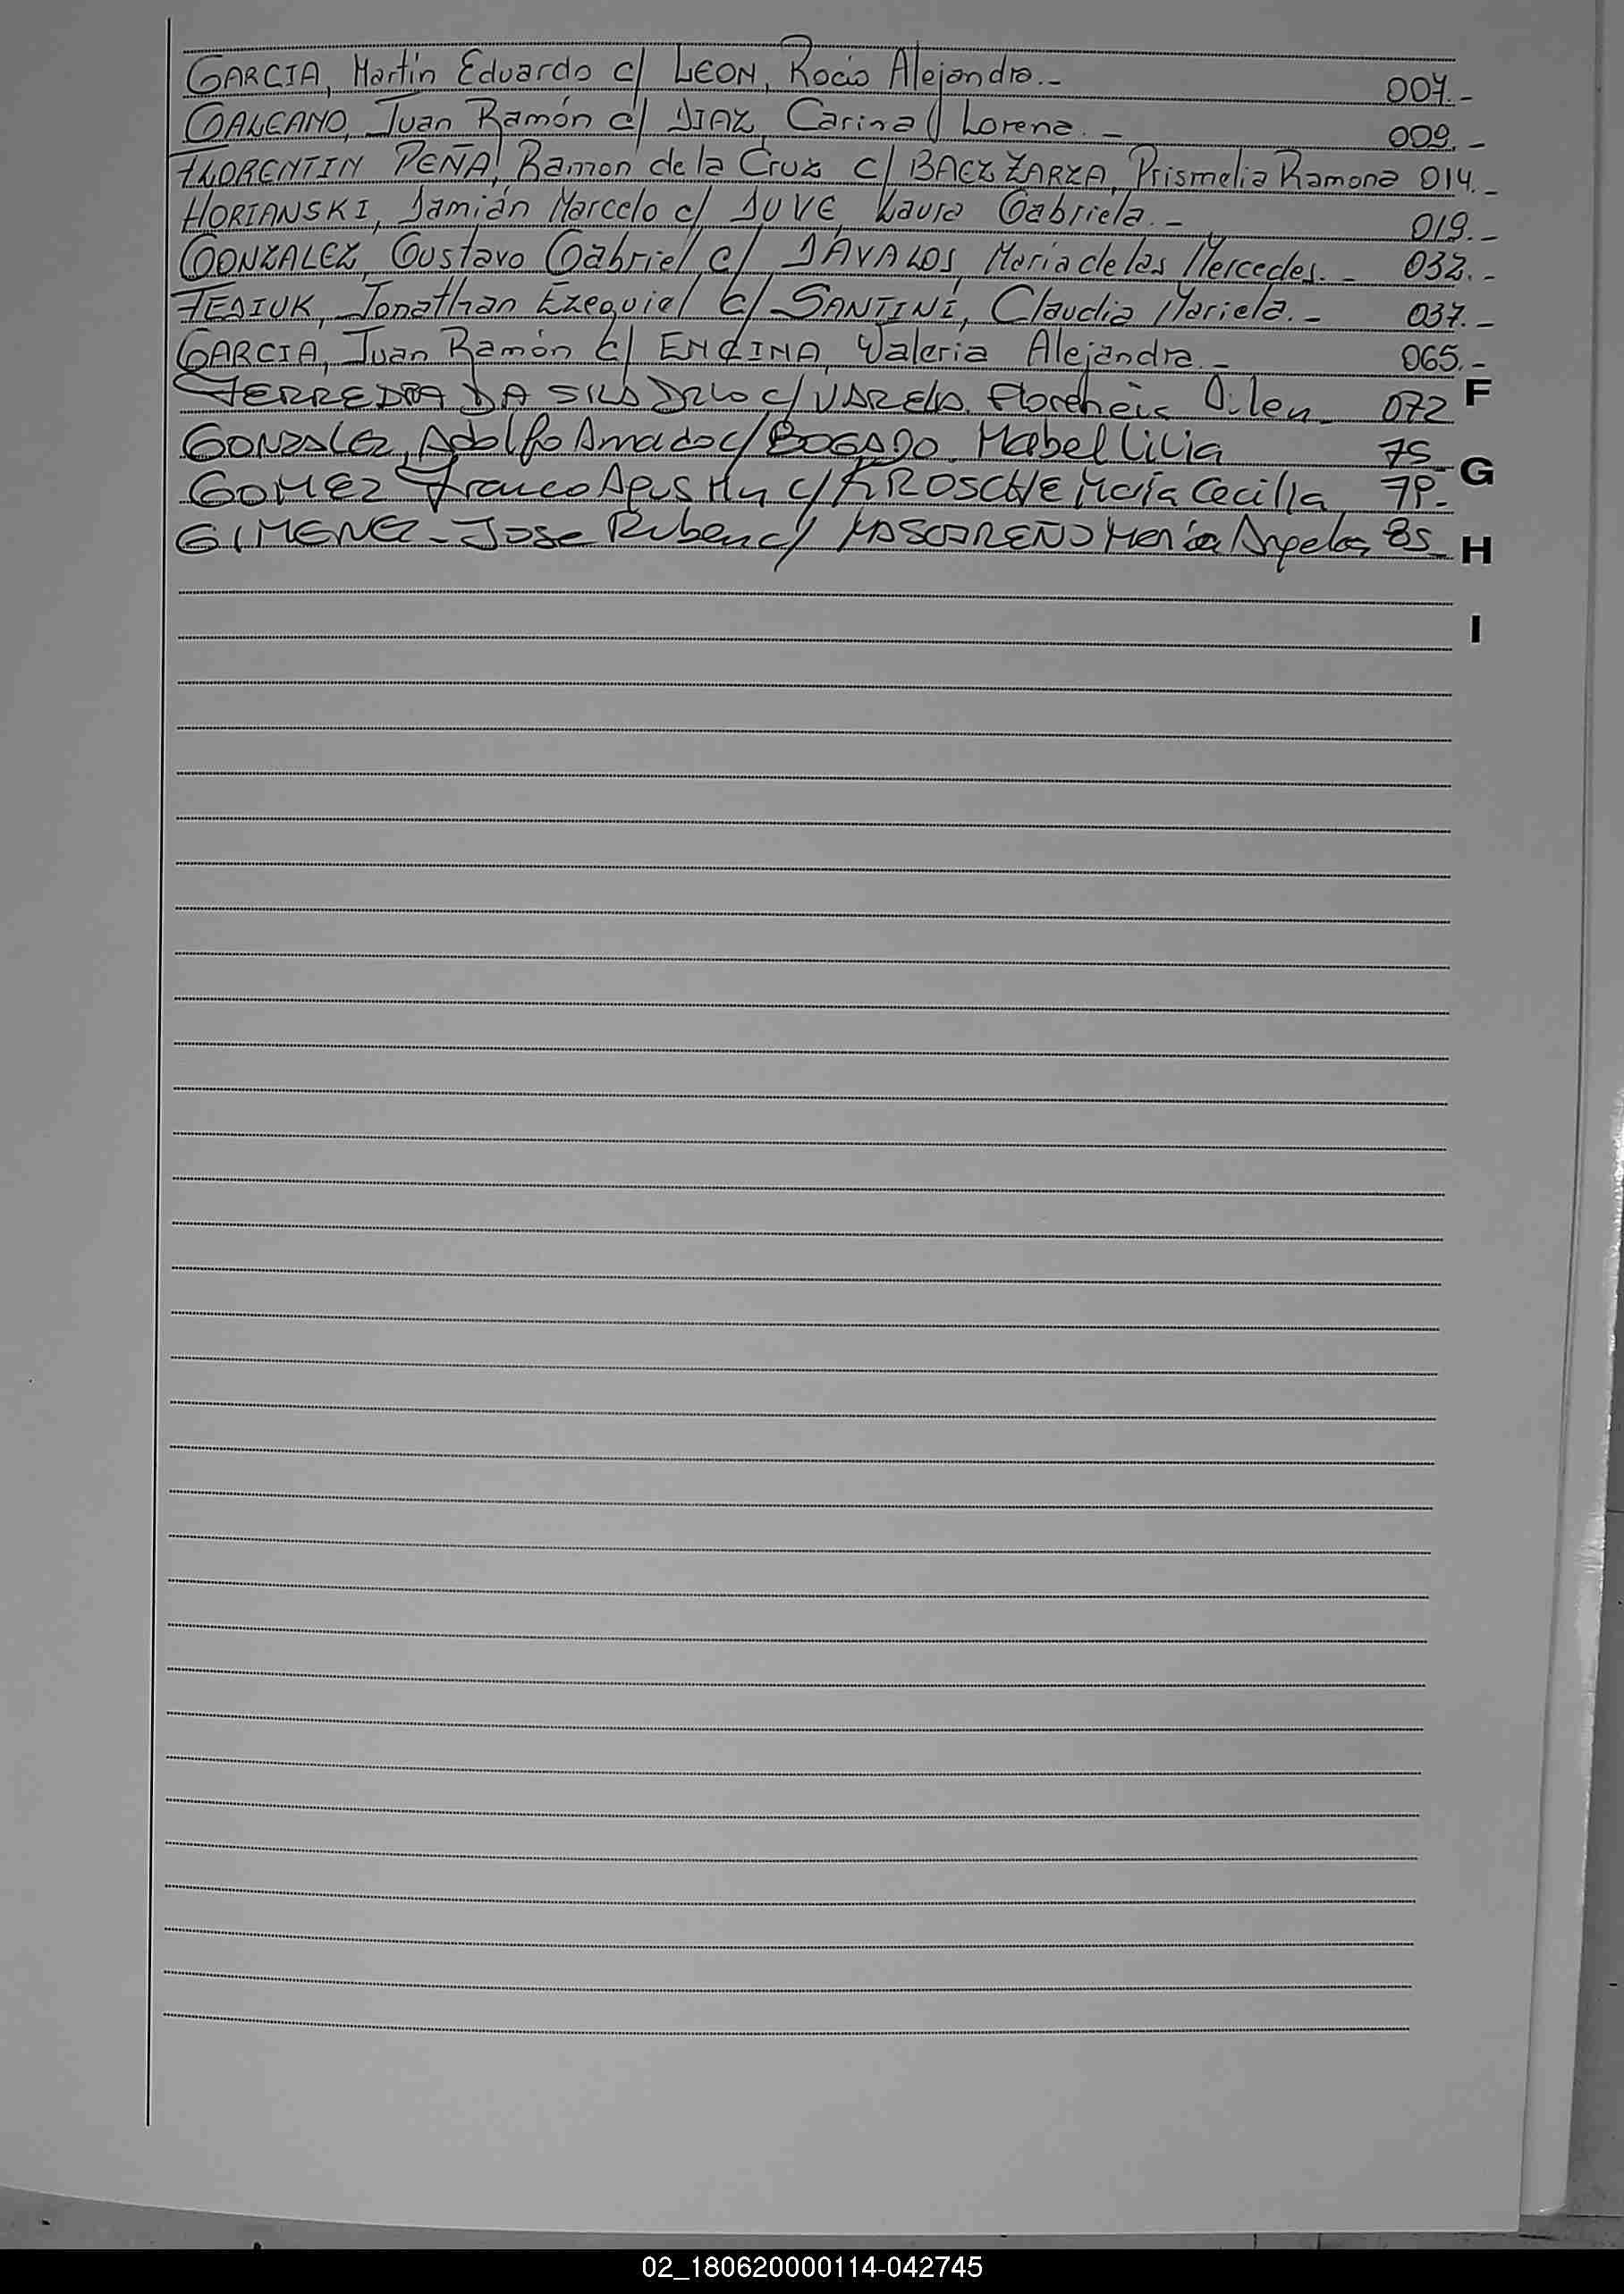 GARCIA, Martín Eduardo c/ LEON, Rocío Alejandra.- 007.-
GALEANO, Juan Ramón c/ DIAZ, Carina Lorena.- 009.-
FLORENTIN PEÑA, Ramon de la Cruz c/ BAEZ ZARZA, Prismelia Ramona 014.-
HORIANSKI, Damián Marcelo c/ DUVE, Laura Gabriela.- 019.-
GONZALEZ, Gustavo Gabriel c/ DÁVALOS, María de las Mercedes.- 032.-
FEDIUK, Jonathan Ezequiel c/ SANTINI, Claudia Mariela.- 037.-
GARCIA, Juan Ramón c/ ENCINA, Valeria Alejandra.- 065.-
FERREIRA DA SILVA c/ VARELA, Florencia Ailen 072 F
GONZALEZ, Adolfo Amado c/ BOGADO, Mabel Lilia 75
G
GOMEZ Franco Agustin c/ María Cecilia 79-
GIMENEZ - Jose Ruben c/ MASCAREÑO María Angeles 85 H
I
02_180620000114-042745